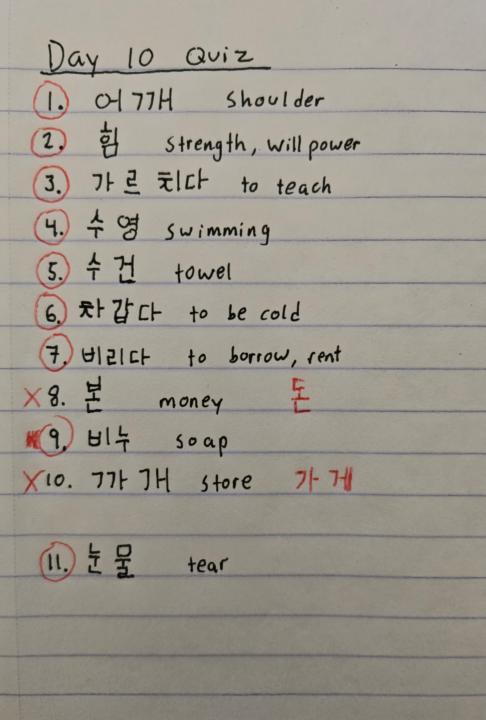 Day 10 Quiz
1. 어깨 shoulder
2. 힘 strength, will power
3. 가르치다 to teach
4. 수영 swimming
5. 수건 towel
6. 차갑다 to be cold
7. 비리다 to borrow, rent
X 8. 본 money 돈
9. 비누 soap
X 10. 까개 store 가게
11. 눈물 tear